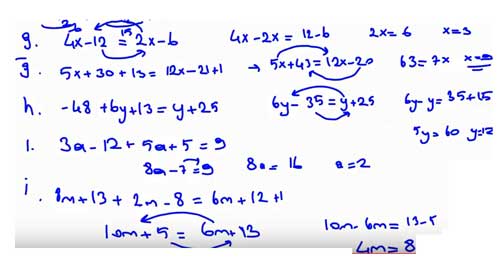 g. 4x-12 = 2x-6 4x-2x = 12-6 2x = 6 x=3
g. 5x+30+13 = 12x-21+1 → 5x+43=12x-20 63=7x
h. -48+6y+13 = y+25 6y-35=y+25 6y-y=35+25
5y=60 y=12
1. 3a-12+5a+5=9
8a-7=9 8a=16 a=2
i. 8m+13+2m-8 = 6m+12+1
10m+5 = 6m+13 10m-6m=13-5
4m=8